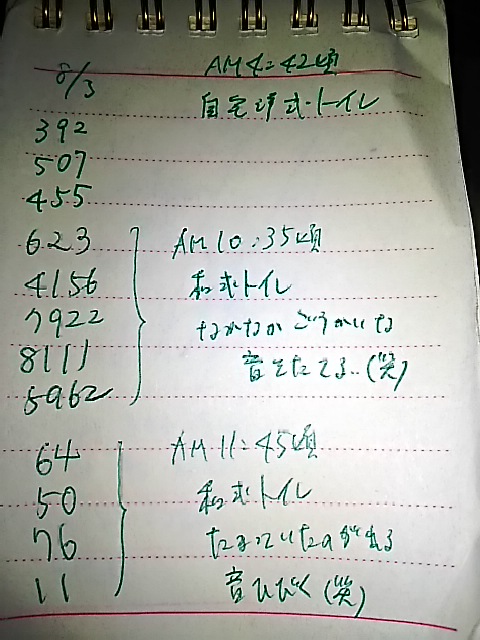 8/3
AM4:42頃
自宅洋式トイレ
392
507
455
623
AM10:35頃
4156
和式トイレ
7922
なかなかごうかいな
8111
音をたてる‥(笑)
5962
64
AM11:45頃
50
和式トイレ
76
たまっていたのが出る
11
音ひびく(笑)